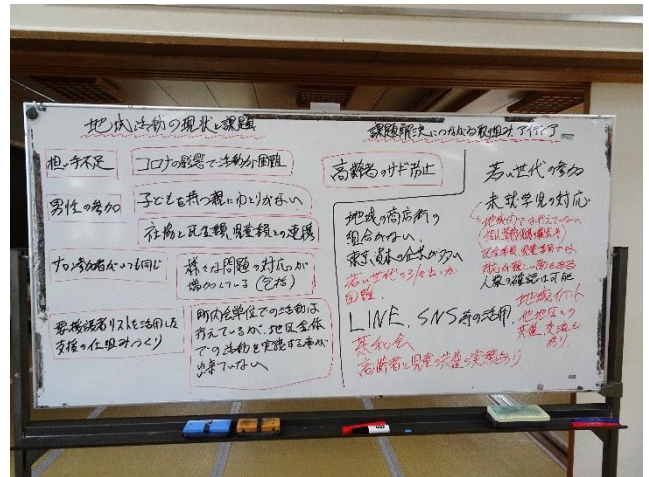 地域活動の現状と課題
担い手不足
コロナの影響で活動が困難
男性の参加
子どもを持つ親にゆとりがない
社協と民生課、児童課との連携
サロン参加者がいつも同じ
様々な問題の対応が
増加している(包括)
要援護者リストを活用した
支援の仕組みづくり
町内会単位での活動は
行えているが、地区全体
での活動を実践する事が
出来ていない
課題解決につながる取組み、アイディア
高齢者の
防止
地域の商店街の
組合がない。
東京資本の企業が多い
若い世代の
困難
LINE、SNS等の活用
高齢者と児童の共催の実績あり
若い世代の参加
未就学児の対応
地域内では行えていない
人数の確認は可能
地域イベント
他地区との
共催、交流も
あり